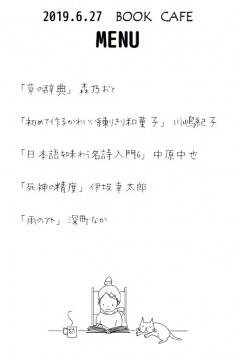 2019.6.27 BOOK CAFE
MENU
「草の辞典」 森乃おと
「初めて作るかわいい練りきり和菓子」 川嶋紀子
「日本語を味わう名詩入門6」 中原中也
「死神の精度」 伊坂幸太郎
「雨のアト」 深町なか